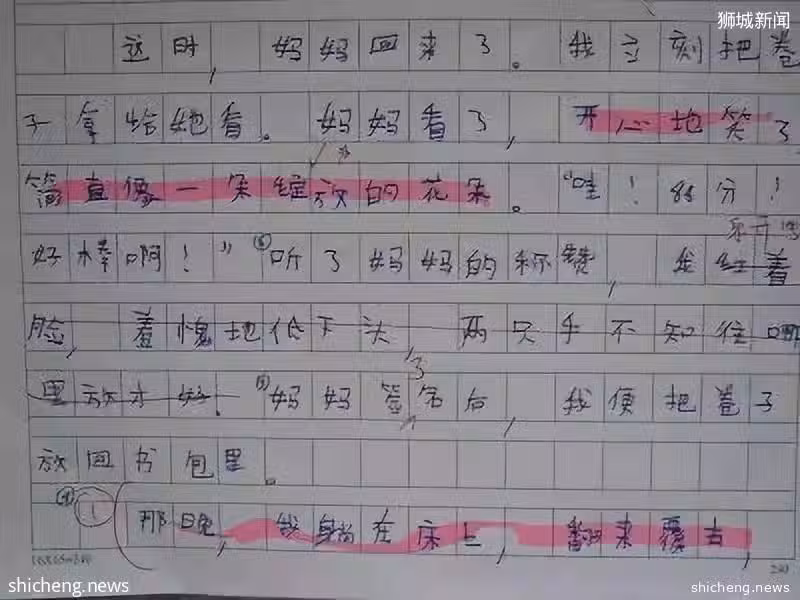 狮城新闻
这时，妈妈回来了。我立刻把卷
子拿给她看。妈妈看了，开心地笑了
简直像一朵绽放的花朵。“哇！88分！
好棒啊！”听了妈妈的称赞，我红着
脸，羞愧地低下头，两只手不知往哪
里放才好。妈妈签名后，我便把卷子
放回书包里。
那晚，我躺在床上，翻来覆去，
shicheng.news
shicheng.news